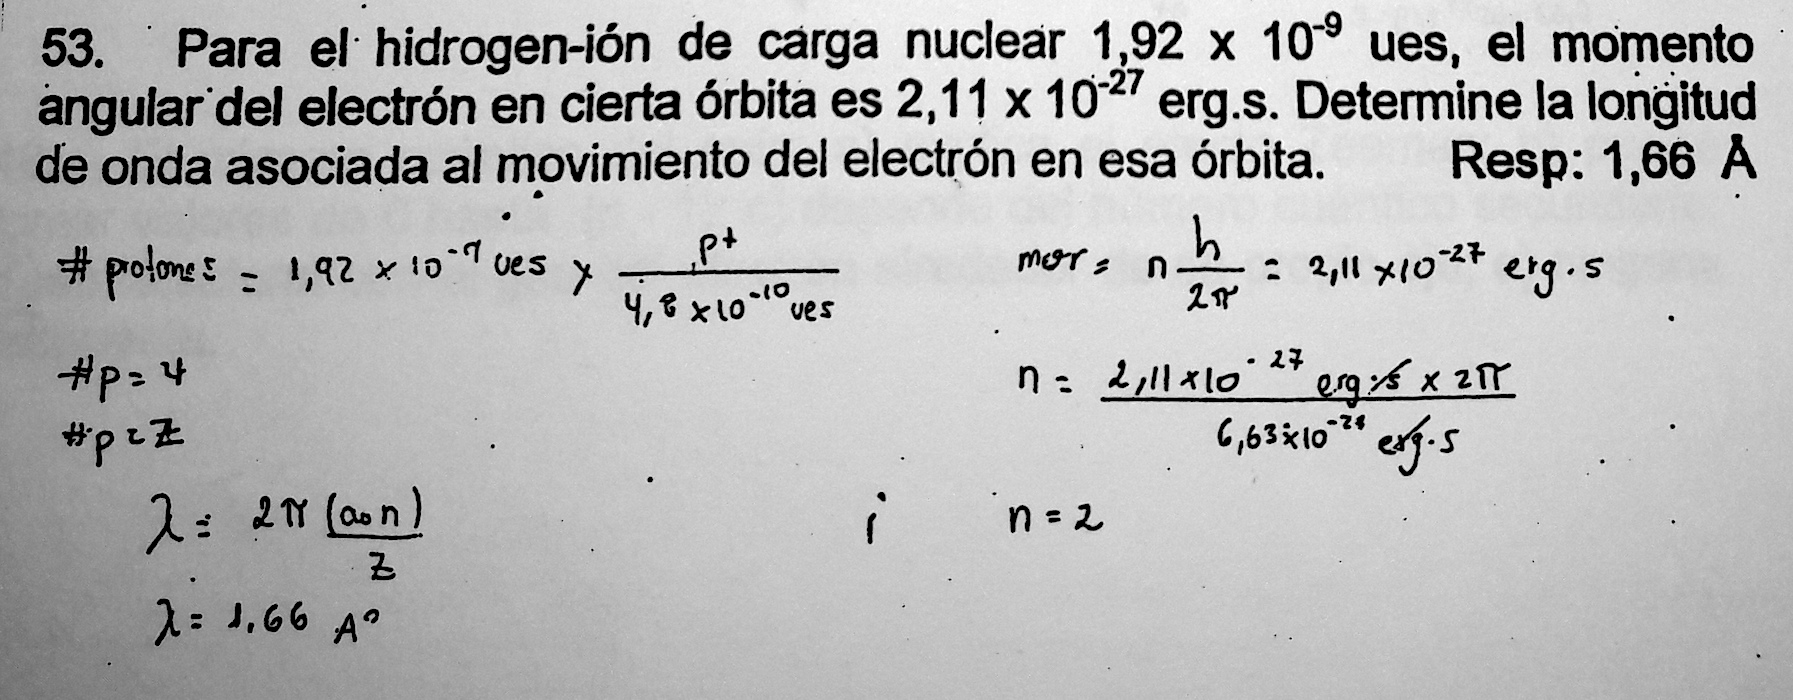 53. Para el hidrogen-ión de carga nuclear 1,92 x 10⁻⁹ ues, el momento
angular del electrón en cierta órbita es 2,11 x 10⁻²⁷ erg.s. Determine la longitud
de onda asociada al movimiento del electrón en esa órbita. Resp: 1,66 Å
# protones = 1,92 x 10⁻⁹ ues x p+ / 4,8 x 10⁻¹⁰ ues
#p = 4
#p = Z
λ = 2π (a₀ n) / Z
λ = 1,66 A°
mvr = n h / 2π = 2,11 x 10⁻²⁷ erg.s
n = 2,11 x 10⁻²⁷ erg.s x 2π / 6,63 x 10⁻²⁷ erg.s
; n = 2